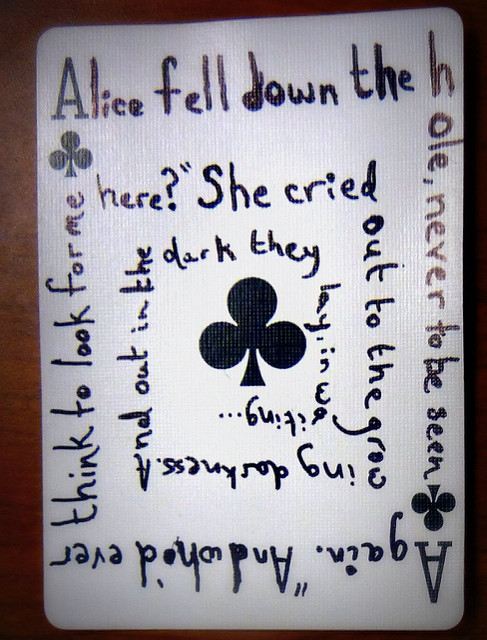 Alice fell down the
hole, never to be seen
Again. "And who'd ever
think to look for me
here?" She cried
out to the grow
ing darkness. A
nd out in the
dark they
lay, in w
aiting...